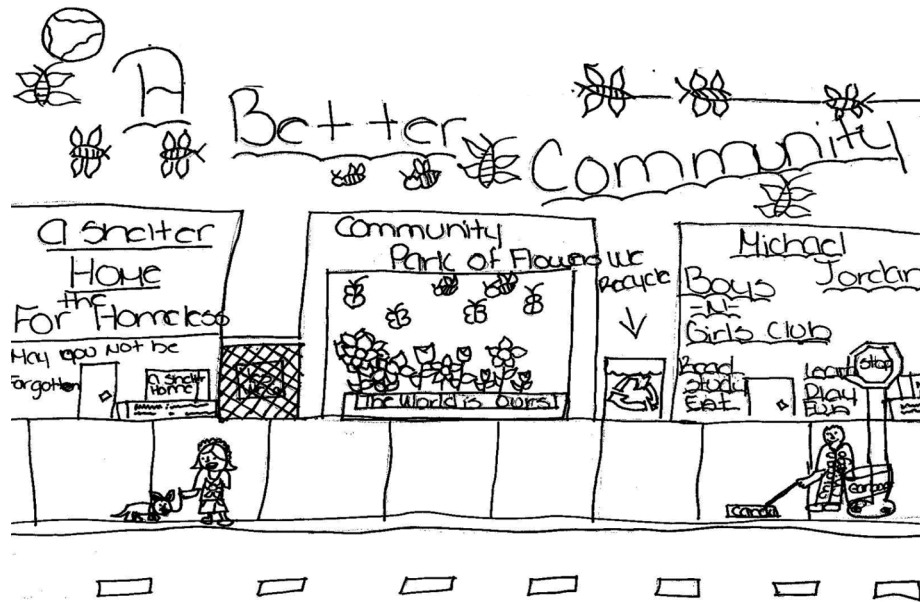 A
Better
Community
A Shelter
Home
the
For Homeless
May you not be
Forgotten
A Shelter
Home
Community
Park of Flowers
The World is Ours!
We
Recycle
Michael
Jordan
Boys
-N-
Girls Club
Read
Study
Eat
Learn
Play
Fun
Stop